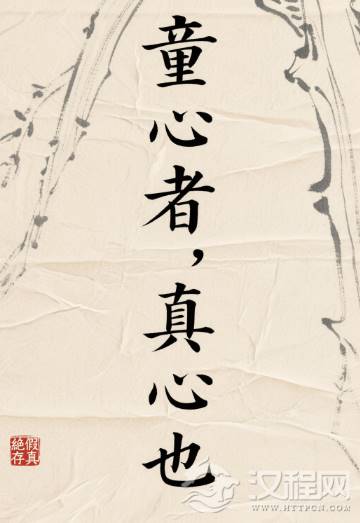 童心者，真心也
絶假存真
汉程网
WWW.HTTPCN.COM